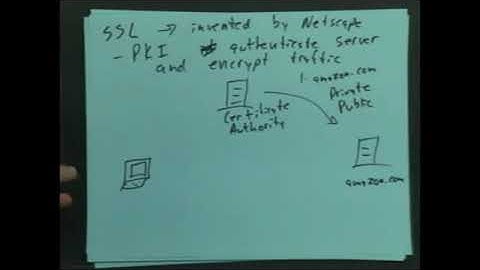 SSL → invented by Netscape
- PKI authenticate server
and encrypt traffic
1. amazon.com
Private
Public
Certificate
Authority
amazon.com